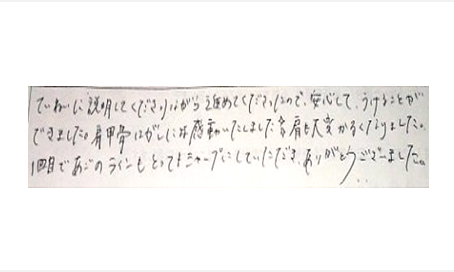 ていねいに説明してくださりながら進めてくださったので、安心して、うけることが
できました。肩甲骨はがしには感動いたしました。首肩も大変かるくなりました。
1回目であごのラインもとってもシャープにしていただき、ありがとうございました。